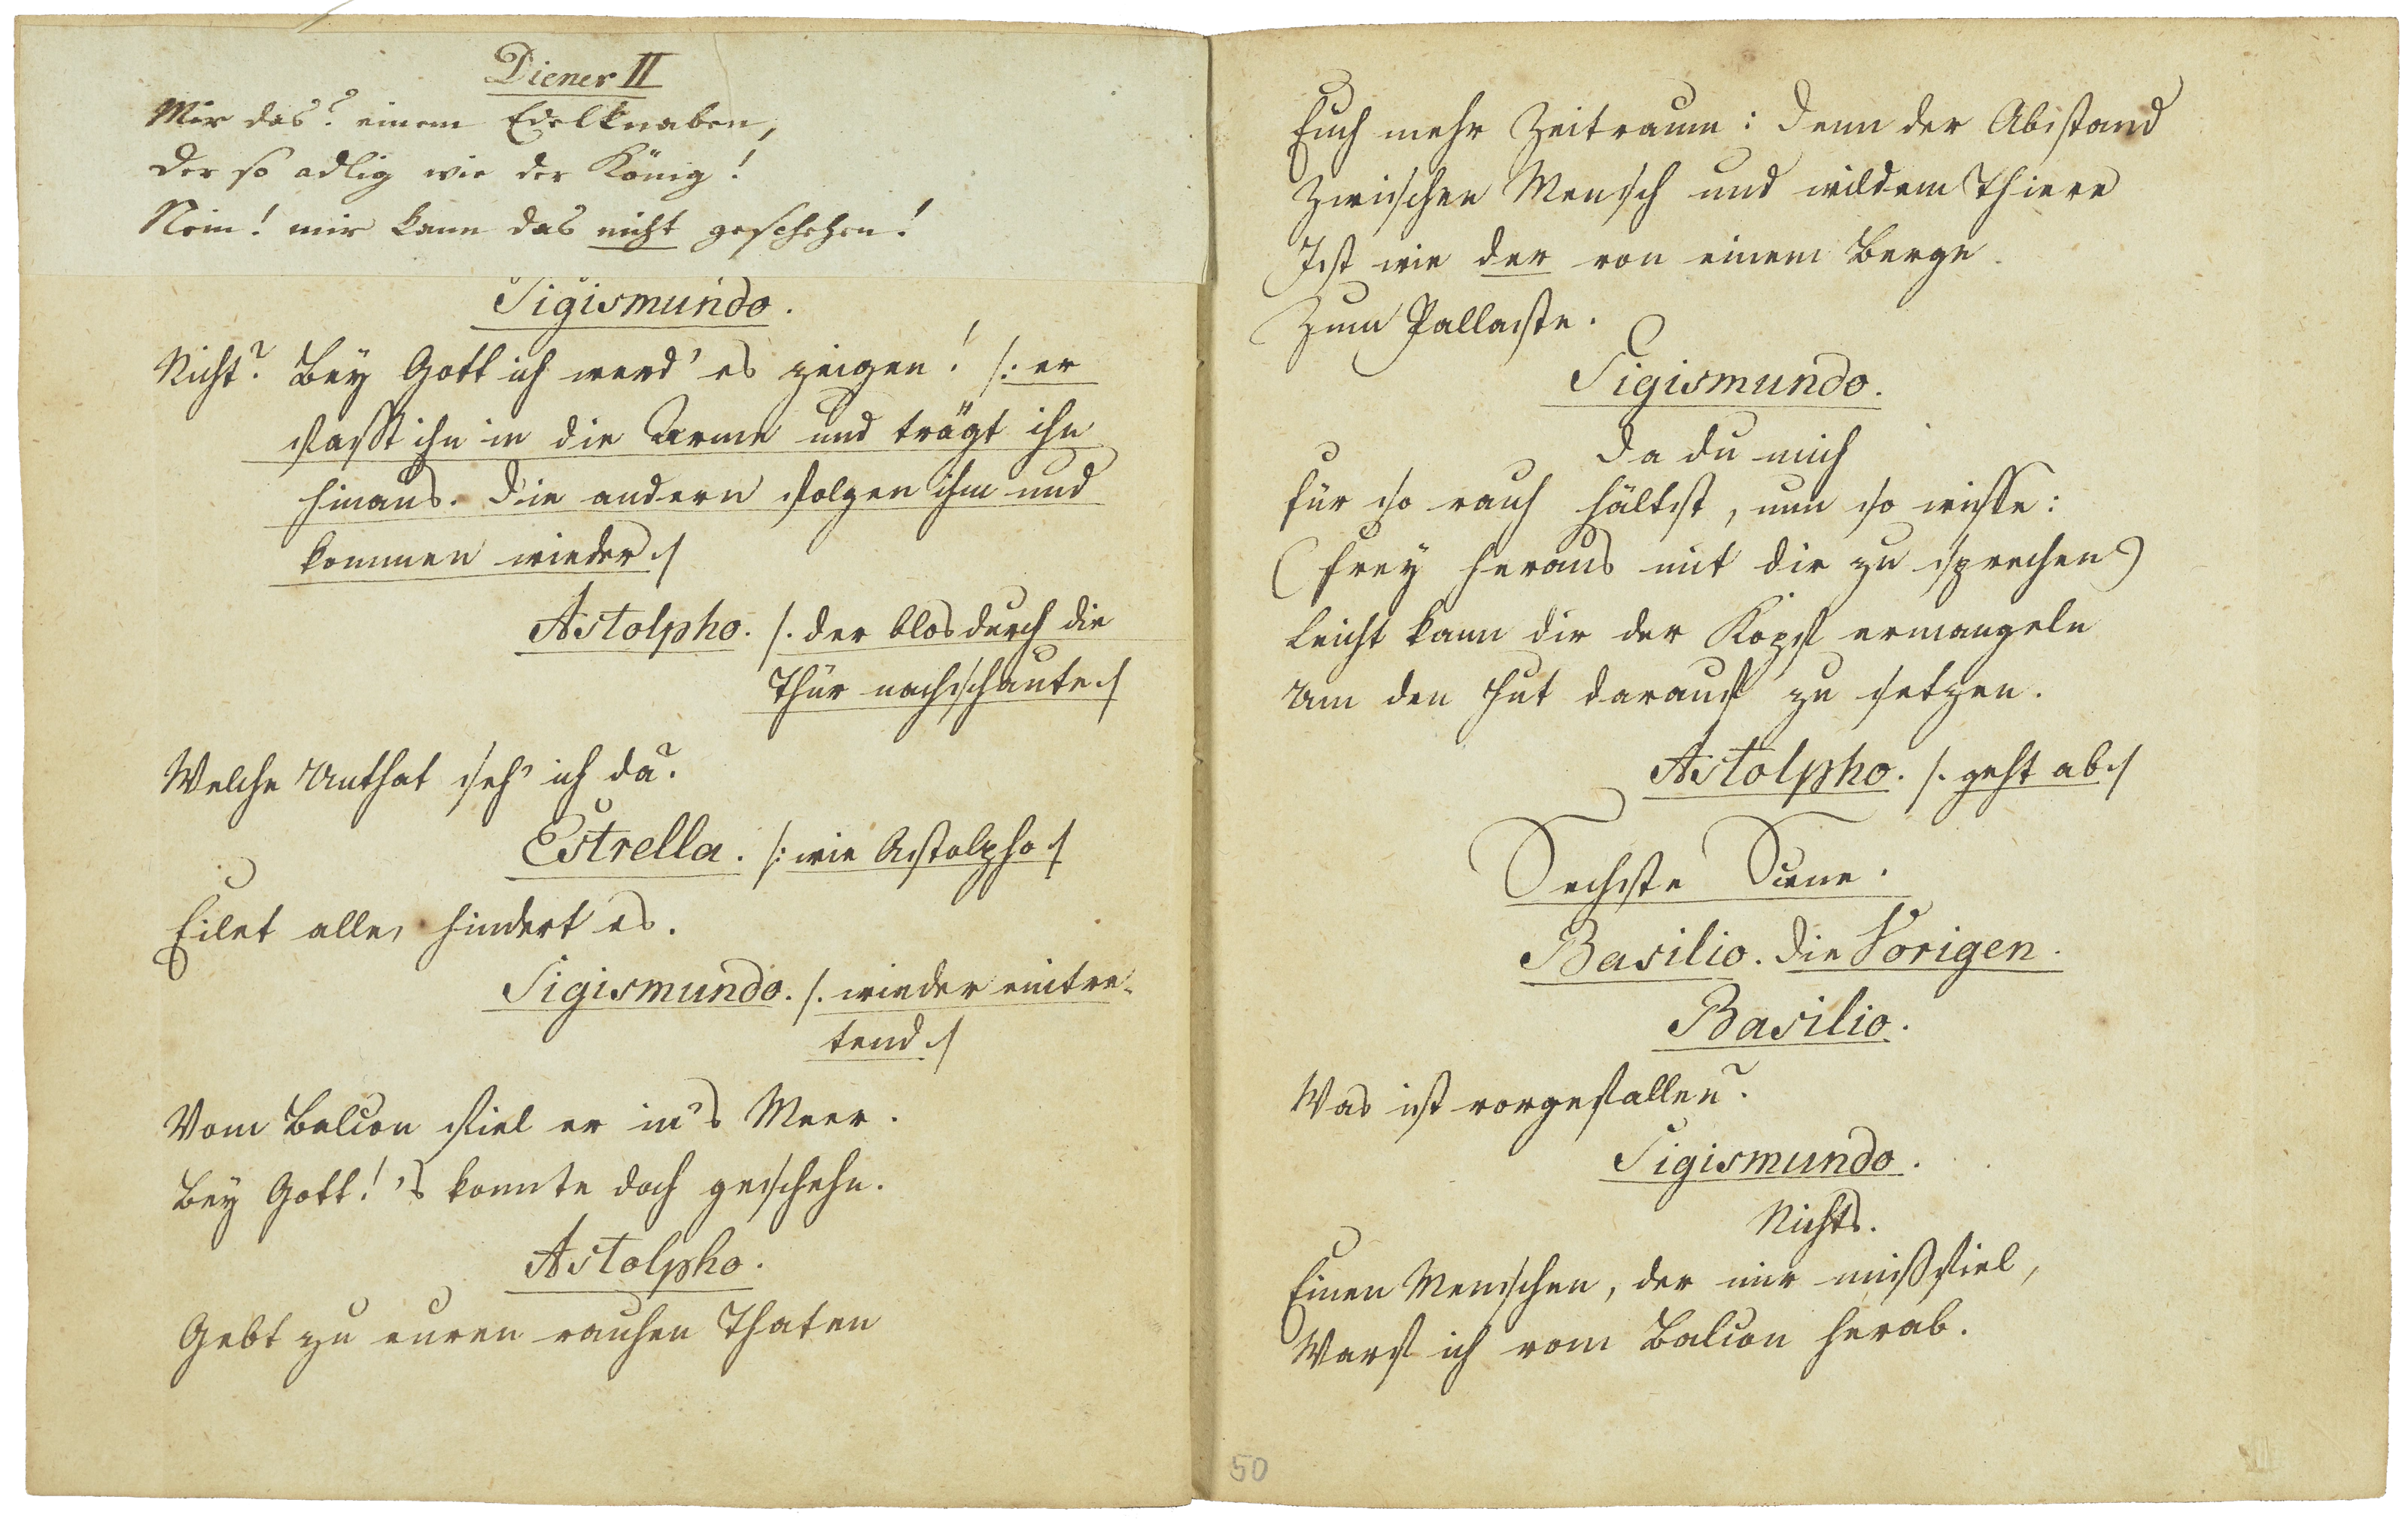 Diener II
Mir das? einem Edelknaben,
der so adlig wie der König!
Nein! mir kann das nicht geschehen!
Sigismundo.
Nicht? Bey Gott ich werd' es zeigen! /: er
fasst ihn in die Arme und trägt ihn
hinaus. Die andern folgen ihm und
kommen wieder :/
Astolpho. /: der blos durch die
Thür nachschaute :/
Welche Unthat seh' ich da?
Estrella. /: wie Astolpho :/
Eilet alle, hindert es.
Sigismundo. /: wieder eintre-
tend :/
Vom Balcon fiel er in's Meer.
Bey Gott! 's konnte doch geschehn.
Astolpho.
Gebt zu euren rauhen Thaten
Euch mehr Zeitraum: denn der Abstand
Zwischen Mensch und wildem Thiere
Ist wie der von einem Berge
Zum Pallaste.
Sigismundo.
Da du mich
für so rauh hältst, nun so wisse:
(Frey heraus mit dir zu sprechen)
Leicht kann dir der Kopf ermangeln
Um den Hut darauf zu setzen.
Astolpho. /: geht ab :/
Sechste Scene.
Basilio. die Vorigen.
Basilio.
Was ist vorgefallen?
Sigismundo.
Nichts.
Einen Menschen, der mir mißfiel,
Warf ich vom Balcon herab.
50